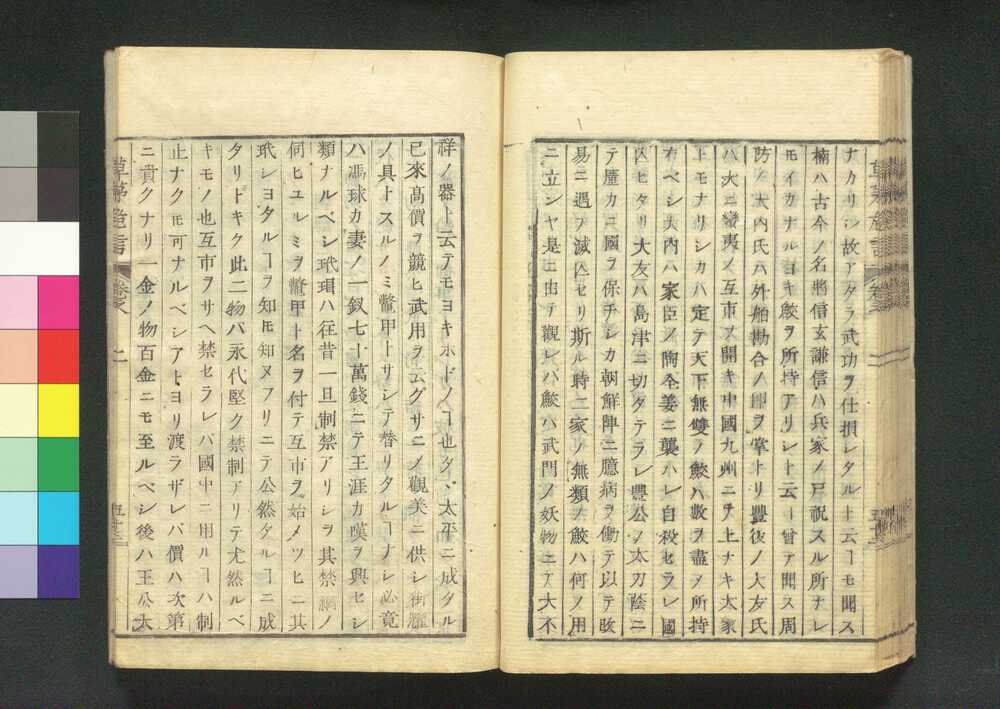 ナカリシ故アタラ武功ヲ仕損シタルト云ヿモ聞ス
楠ハ古今ノ名將信玄謙信ハ兵家ノ尸祝スル所ナレ
モイカナルヨキ鮫ヲ所持アリシト云ヿ曾テ聞ス周
防ノ大内氏ハ外舶勘合ノ印ヲ掌トリ豊後ノ大友氏
ハ大ニ蠻夷ノ互市ヲ開キ中國九州ニテ上ナキ太家
トモナリシカハ定テ天下無雙ノ鮫ハ數ヲ盡テ所持
有ベシ大内ハ家臣ノ陶全姜ニ襲ハレ自殺セラレ國
亡ヒタリ大友ハ島津ニ切タテラレ豊公ノ太刀蔭ニ
テ厪カニ國ヲ保チシカ朝鮮陣ニ臆病ヲ働テ以テ敗
易ニ遇テ滅亡セリ斯ル時二家ノ無類ノ鮫ハ何ノ用
ニ立シヤ是ニ由テ觀レバ鮫ハ武門ノ妖物ニテ大不
祥ノ器ト云テモヨキホドノヿ也タヽ太平ニ成タル
已來高價ヲ競ヒ武用ヲ云グサニノ觀美ニ供シ衒耀
ノ具トスルノミ鼈甲トサシテ替リタルヿナシ必竟
ハ馮球カ妻ノ一釵七十萬錢ニテ王涯カ嘆ヲ興セシ
類ナルベシ玳瑁ハ往昔一旦制禁アリシヲ其禁網ノ
伺ヒユルミヲ鼈甲ト名ヲ付テ互市ヲ始メツヒニ其
玳シヨタルヿヲ知モ知ヌフリニテ公然タルヿニ成
タリトキク此二物バ永代堅ク禁制アリテ尤然ルベ
キモノ也互市ヲサヘ禁セラレバ國中ニ用ルヿハ制
止ナクモ可ナルベシアトヨリ渡ラザレバ價ハ次第
ニ貴クナリ一金ノ物百金ニモ至ルベシ後ハ王公大
草茅危言
二